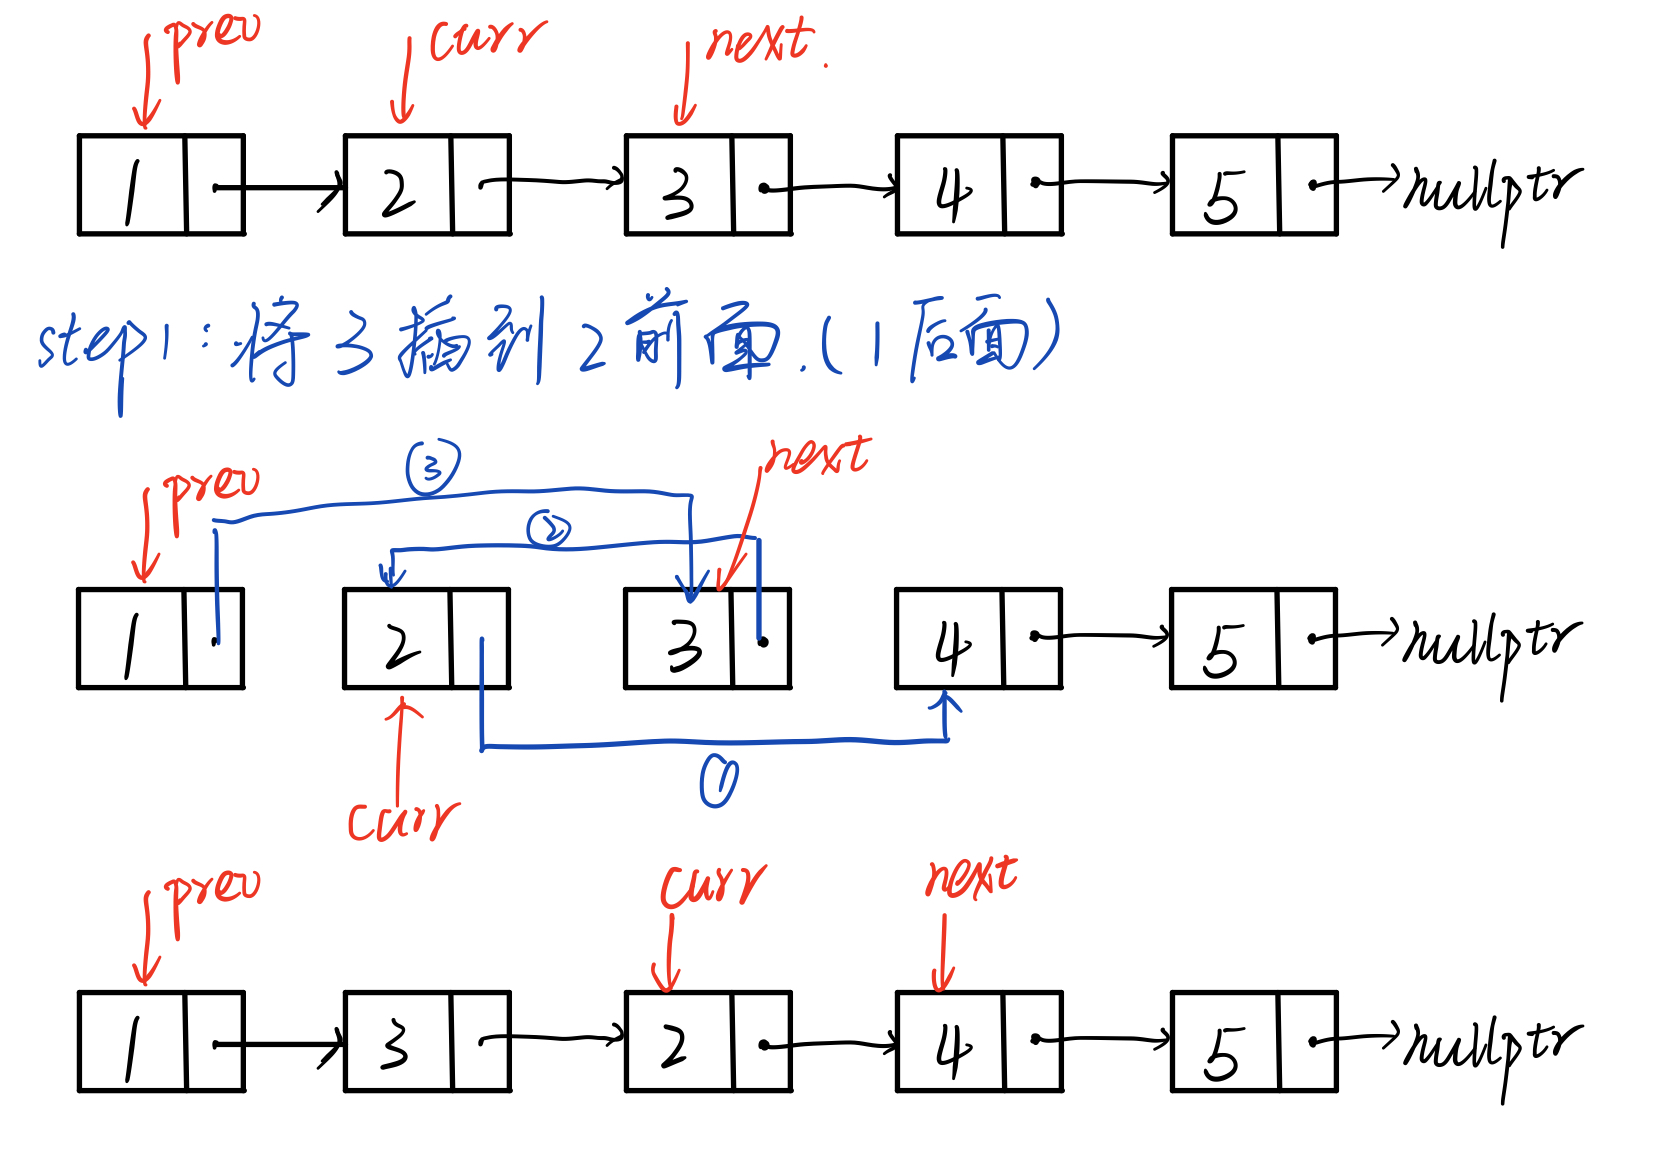 prev curr next.
1 2 3 4 5 nullptr
step1:将3插到2前面.(1后面)
③ next
prev ②
1 2 3 4 5 nullptr
①
curr
prev curr next
1 3 2 4 5 nullptr